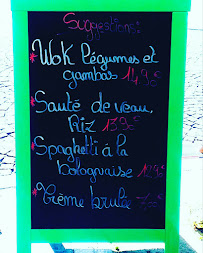 Suggestions:
* Wok Légumes et
gambas 14.90€
* Sauté de veau,
Riz 13.90€
* Spaghetti à la
bolognaise 12.90€
* Crème brulée 7.00€